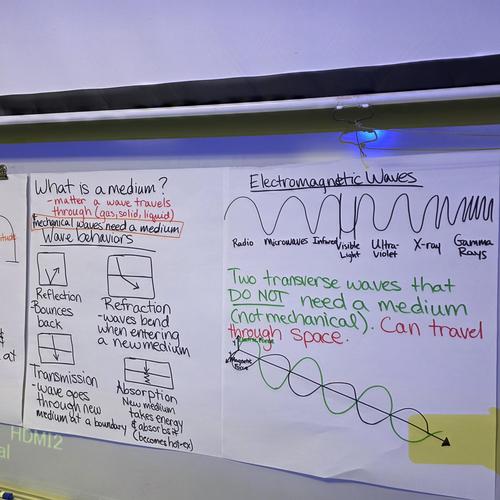 What is a medium?
- matter a wave travels
through (gas, solid, liquid)
mechanical waves need a medium
Wave behaviors
Reflection
- Bounces
back
Refraction
- waves bend
when entering
a new medium
Transmission
- wave goes
through new
medium at a boundary
Absorption
New medium
takes energy
& absorbs it
(becomes hot-ex)
at
Electromagnetic Waves
Radio Microwaves Infrared Visible Light Ultra-violet X-ray Gamma Rays
Two transverse waves that
DO NOT need a medium
(not mechanical). Can travel
through space.
HDMI2